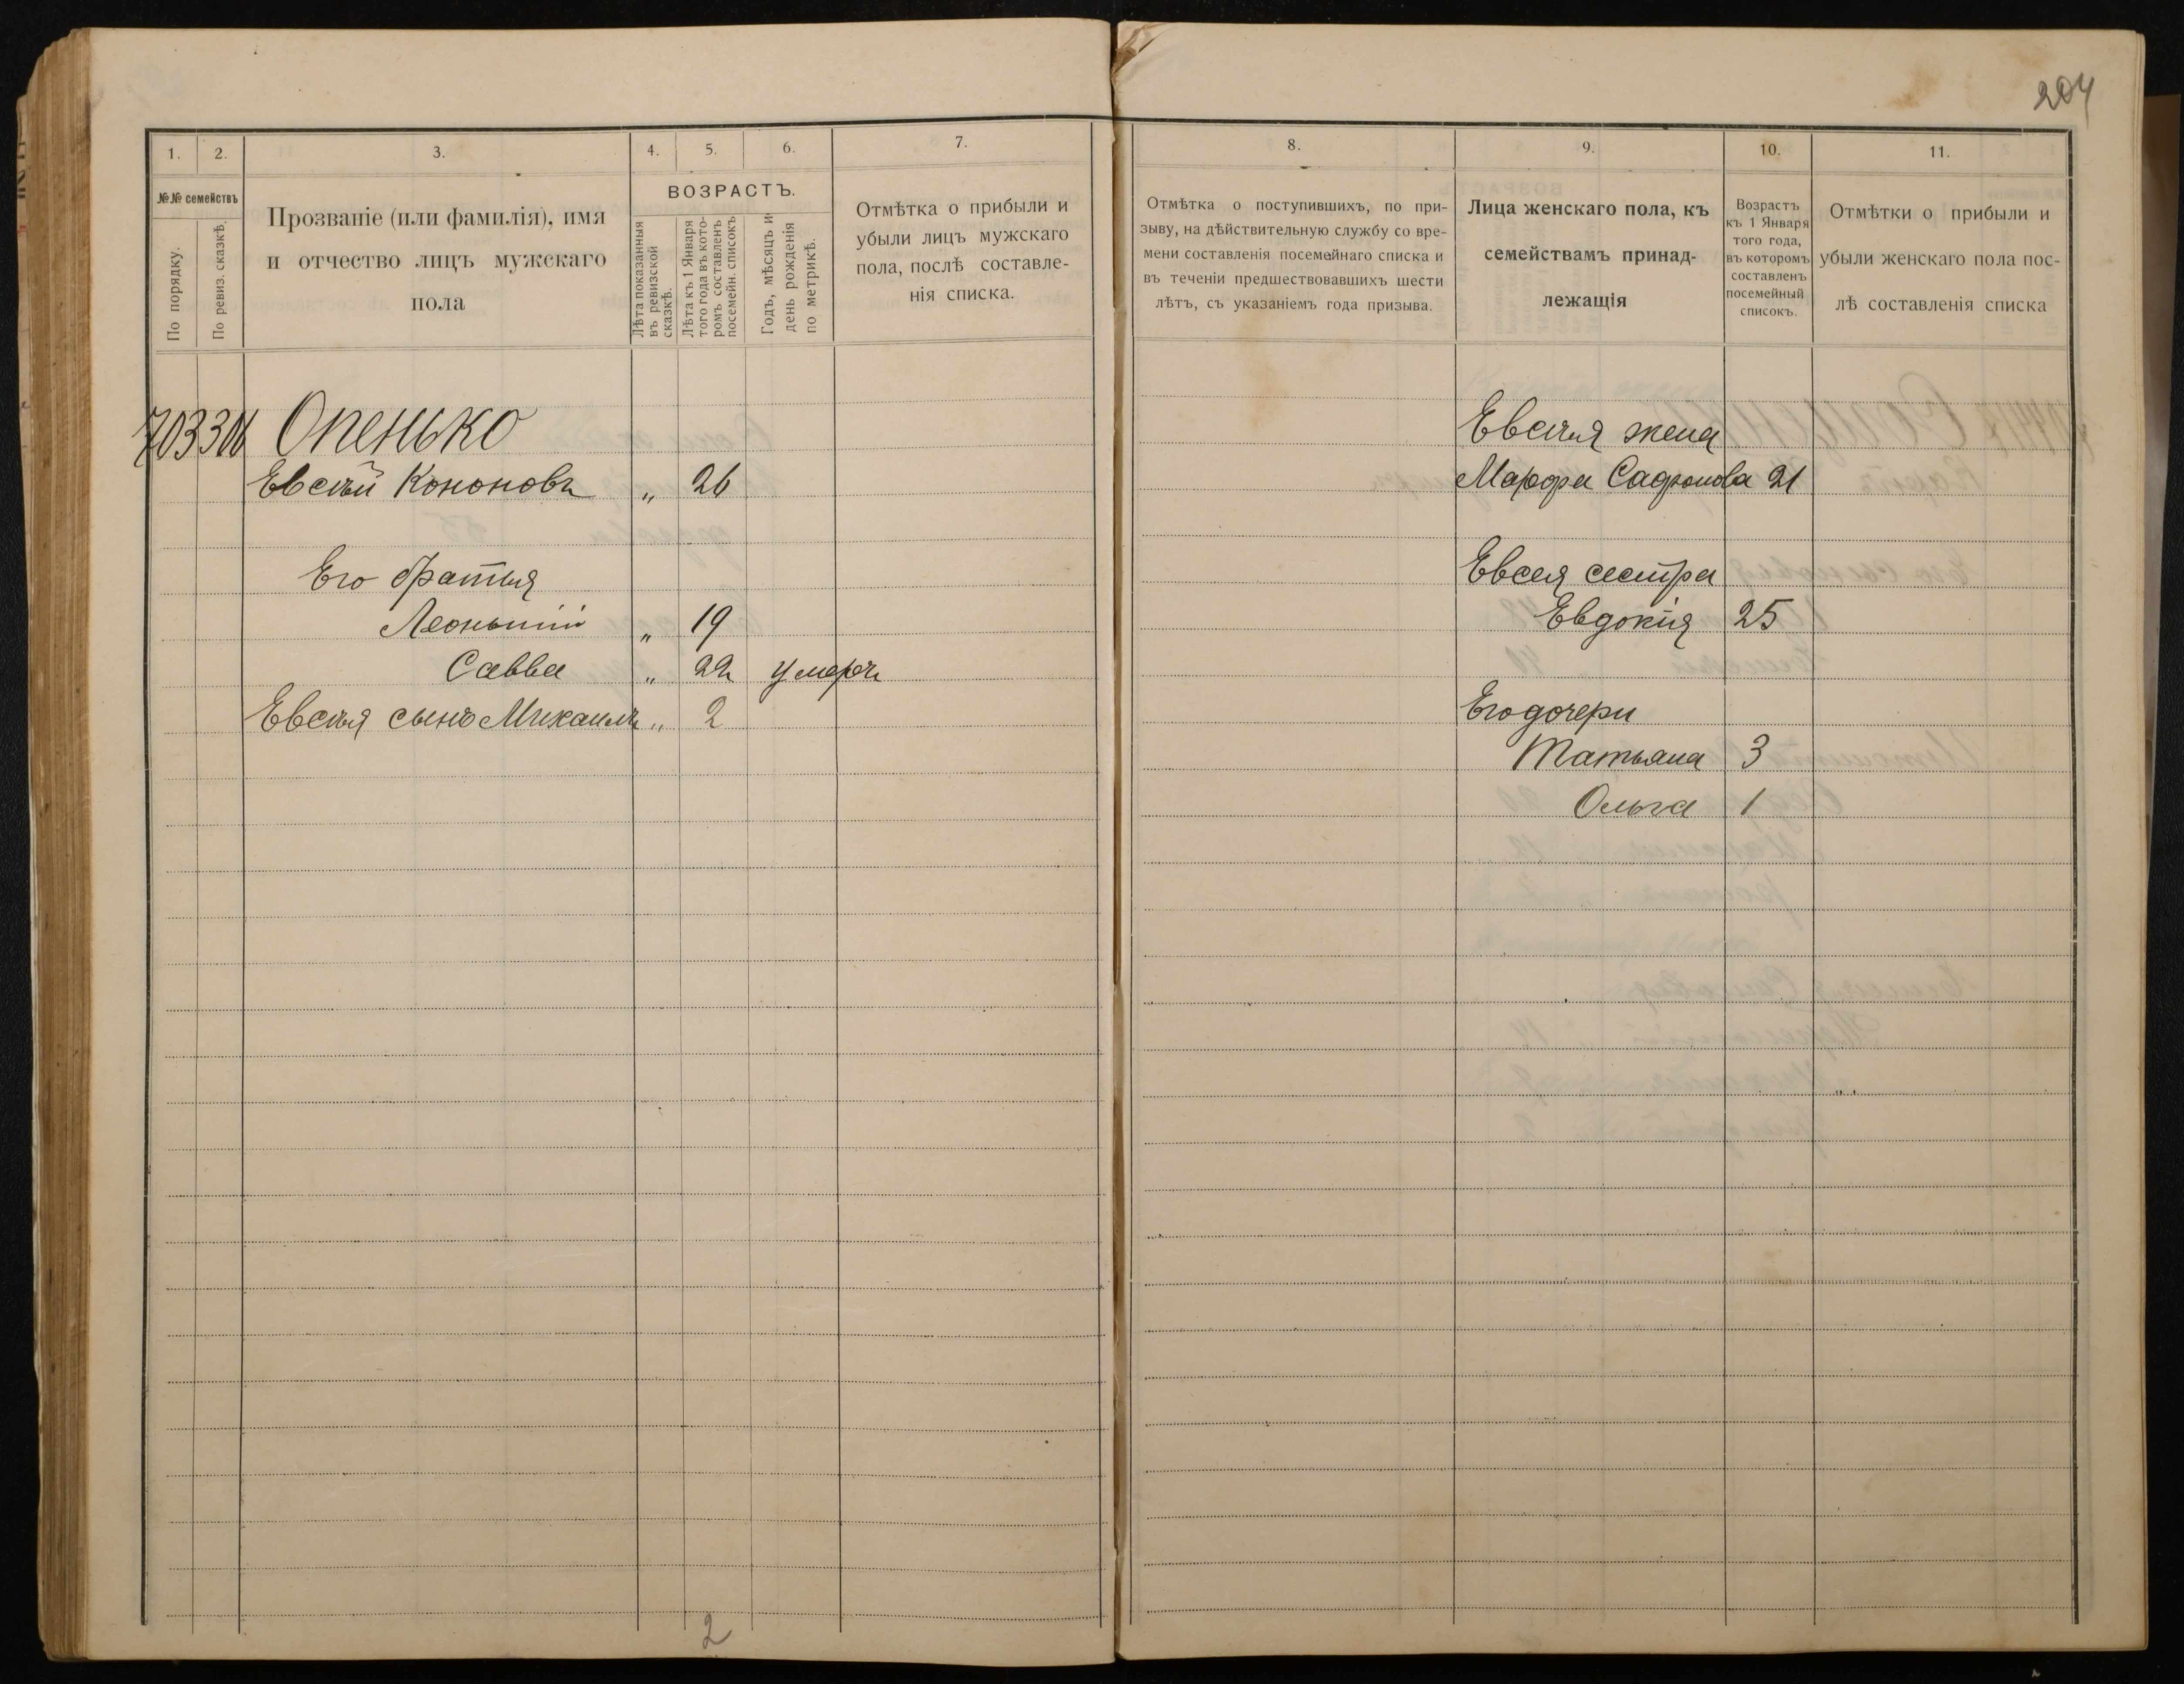 204
1. 2. 3. 4. 5. 6. 7.
№№ семействъ
По порядку.
По ревиз. сказкѣ.
Прозваніе (или фамилія), имя
и отчество лицъ мужскаго
пола
ВОЗРАСТЪ.
Лѣта показанныя
въ ревизской
сказкѣ.
Лѣта къ 1 Января
того года въ кото-
ромъ составленъ
посемейн. списокъ
Годъ, мѣсяцъ и
день рожденія
по метрикѣ.
Отмѣтка о прибыли и
убыли лицъ мужскаго
пола, послѣ составле-
нія списка.
703 Опенько
Евсѣй Кононовъ „ 26
Его братья
Леонтий „ 19
Савва „ 22 умеръ
Евсѣя сынъ Михаилъ „ 2
2
8. 9. 10. 11.
Отмѣтка о поступившихъ, по при-
зыву, на дѣйствительную службу со вре-
мени составленія посемейнаго списка и
въ теченіи предшествовавшихъ шести
лѣтъ, съ указаніемъ года призыва.
Лица женскаго пола, къ
семействамъ принад-
лежащія
Возрастъ
къ 1 Января
того года,
въ которомъ
составленъ
посемейный
списокъ.
Отмѣтки о прибыли и
убыли женскаго пола пос-
лѣ составленія списка
Евсѣя жена
Марфа Сафронова 21
Евсея сестра
Евдокія 25
Его дочери
Татьяна 3
Ольга 1